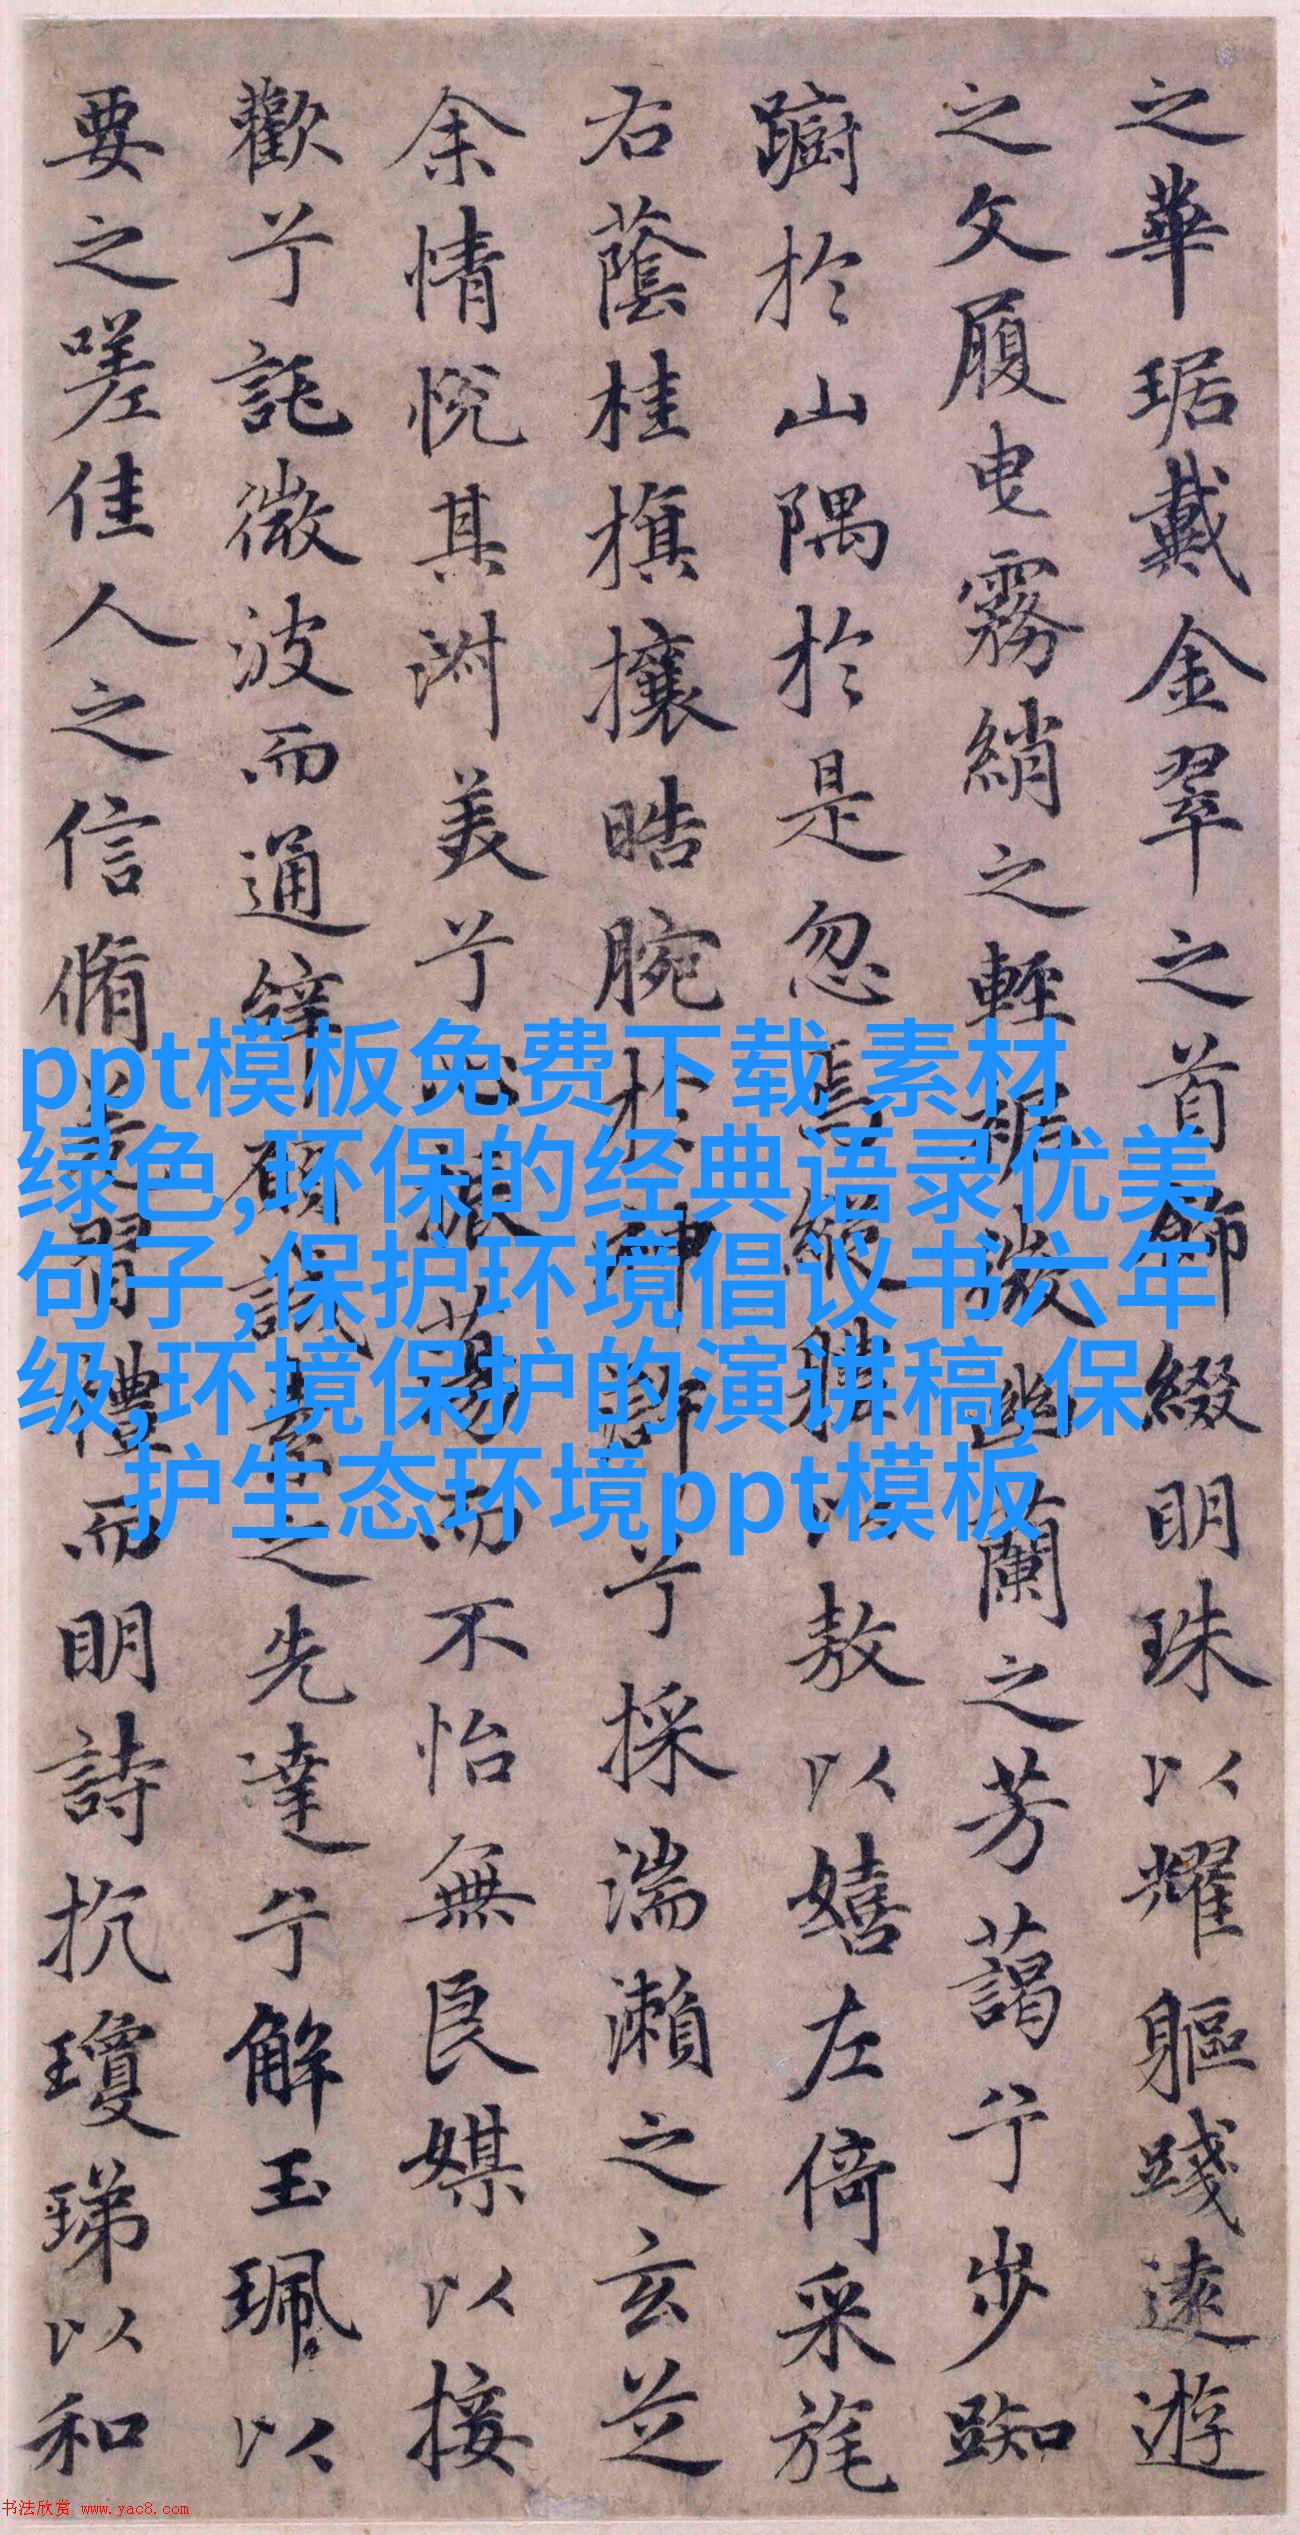 之華琚戴金翠之首飾綴明珠以耀軀踐遠遊
之文履曳霧綃之輕裾微幽蘭之芳藹兮步踟
躕於山隅於是忽焉縱體以敖以嬉左倚采旄
右蔭桂旗攘晧腕於神滸兮採湍瀨之玄芝
余情悅其淑美兮心振蕩而不怡無良媒以接
歡兮託微波而通辭願誠素之先達兮解玉珮以
要之嗟佳人之信脩羌習禮而明詩抗瓊珶以和
ppt模板免费下载 素材
绿色,环保的经典语录优美
句子,保护环境倡议书六年
级,环境保护的演讲稿,保
护生态环境ppt模板
书法欣赏 www.yac8.com